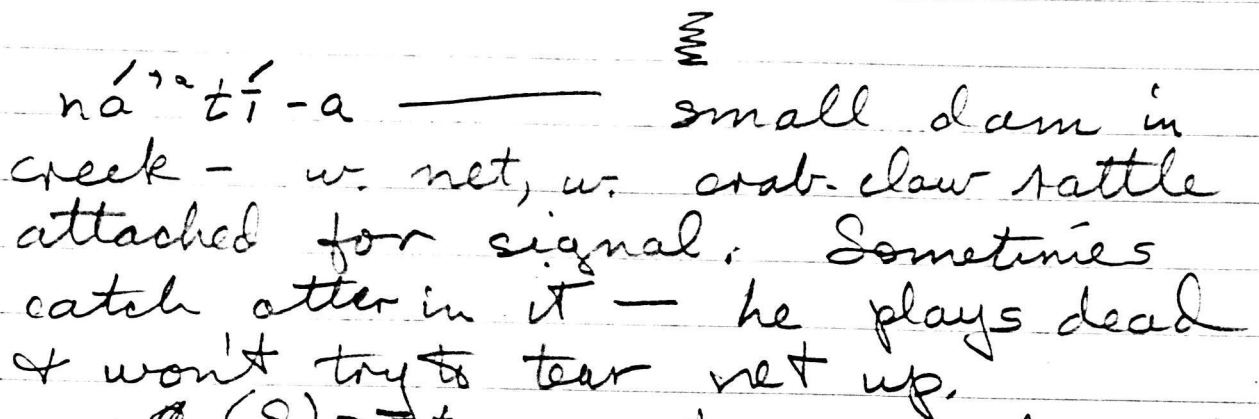 ná’ᵃtí̄-a —— small dam in
creek - w. net, w. crab-claw rattle
attached for signal. Sometimes
catch otter in it — he plays dead
& won't try to tear net up.